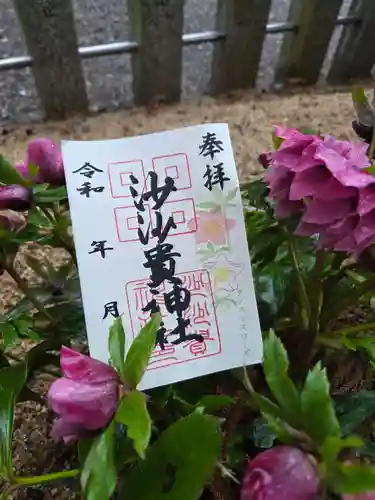 奉拝
沙沙貴神社
令和
年
月